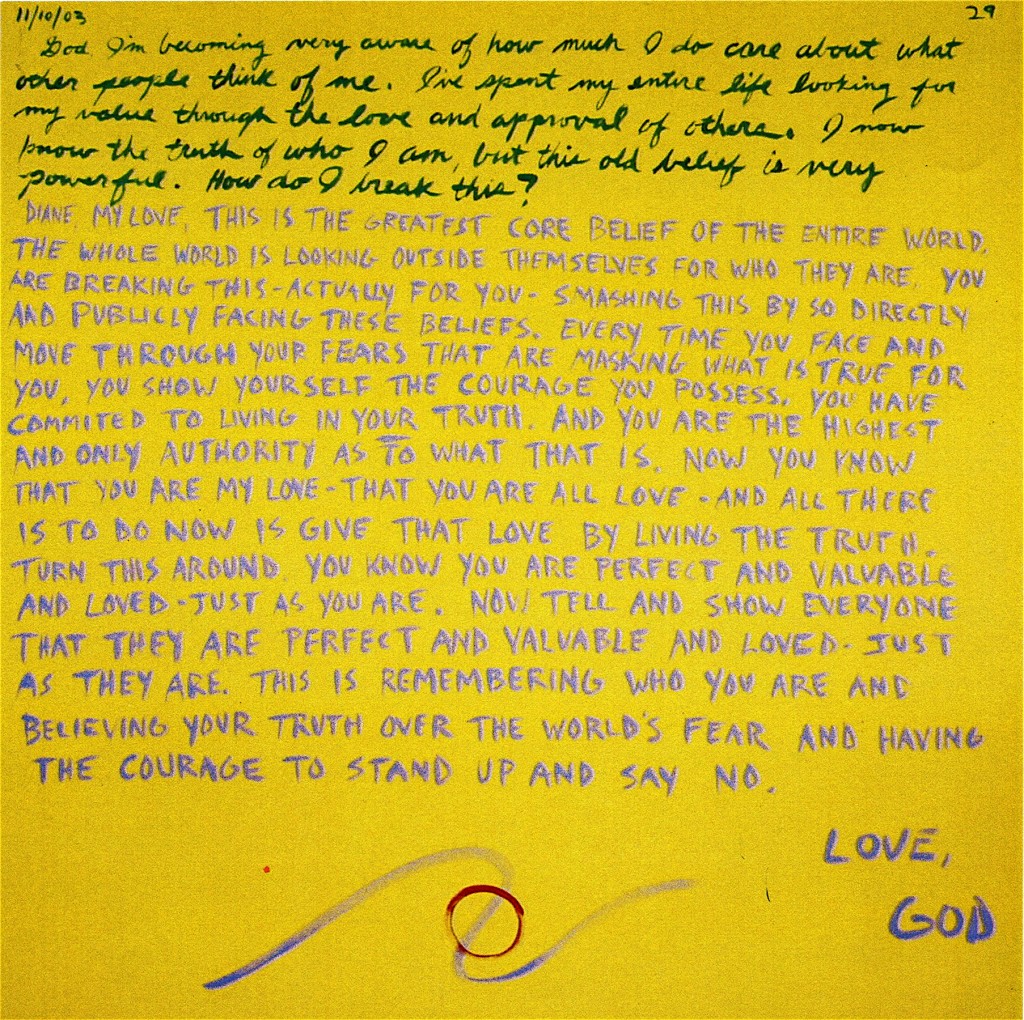 11/10/03 29
God I'm becoming very aware of how much I do care about what
other people think of me. I've spent my entire life looking for
my value through the love and approval of others. I now
know the truth of who I am, but this old belief is very
powerful. How do I break this?
DIANE, MY LOVE, THIS IS THE GREATEST CORE BELIEF OF THE ENTIRE WORLD.
THE WHOLE WORLD IS LOOKING OUTSIDE THEMSELVES FOR WHO THEY ARE. YOU
ARE BREAKING THIS - ACTUALLY FOR YOU - SMASHING THIS BY SO DIRECTLY
AND PUBLICLY FACING THESE BELIEFS. EVERY TIME YOU FACE AND
MOVE THROUGH YOUR FEARS THAT ARE MASKING WHAT IS TRUE FOR
YOU, YOU SHOW YOURSELF THE COURAGE YOU POSSESS. YOU HAVE
COMMITED TO LIVING IN YOUR TRUTH. AND YOU ARE THE HIGHEST
AND ONLY AUTHORITY AS TO WHAT THAT IS. NOW YOU KNOW
THAT YOU ARE MY LOVE - THAT YOU ARE ALL LOVE - AND ALL THERE
IS TO DO NOW IS GIVE THAT LOVE BY LIVING THE TRUTH.
TURN THIS AROUND. YOU KNOW YOU ARE PERFECT AND VALUABLE
AND LOVED - JUST AS YOU ARE. NOW TELL AND SHOW EVERYONE
THAT THEY ARE PERFECT AND VALUABLE AND LOVED - JUST
AS THEY ARE. THIS IS REMEMBERING WHO YOU ARE AND
BELIEVING YOUR TRUTH OVER THE WORLD'S FEAR AND HAVING
THE COURAGE TO STAND UP AND SAY NO.
LOVE,
GOD